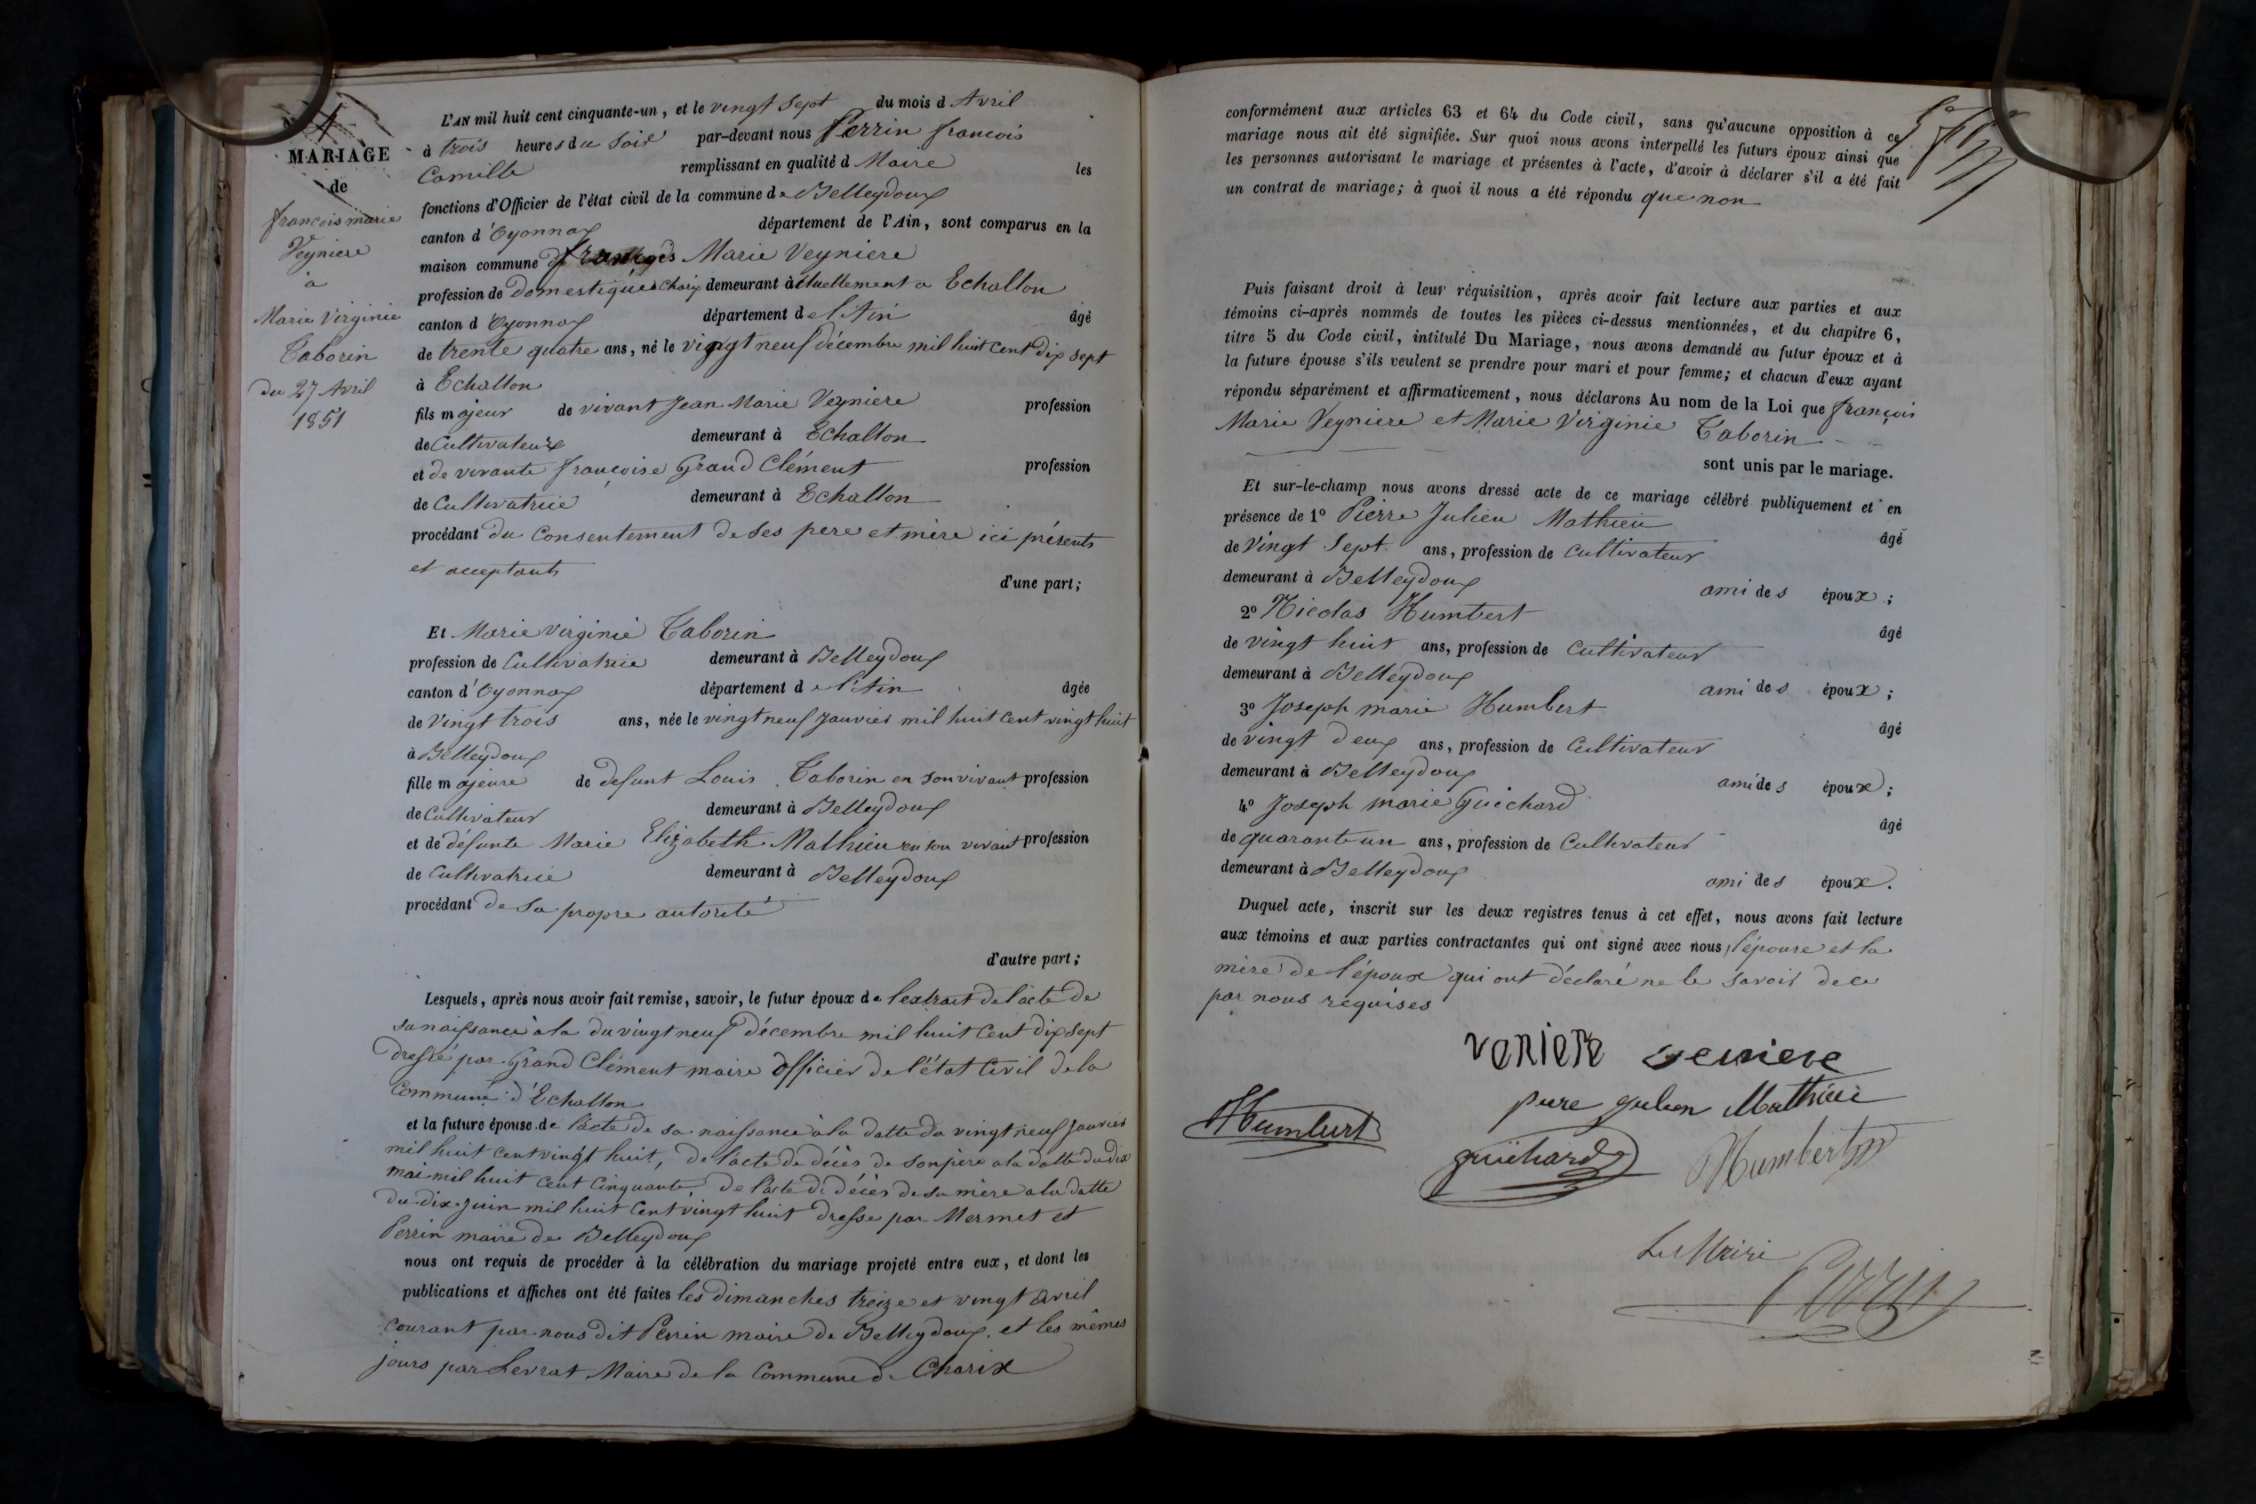 4
MARIAGE
de
françois marie
Veyniere
à
Marie Virginie
Taborin
du 27 Avril
1851
L'AN mil huit cent cinquante-un, et le vingt sept du mois d Avril
à trois heures du Soir par-devant nous Perrin françois
Camille remplissant en qualité d Maire les
fonctions d'Officier de l'état civil de la commune de Belleydoux
canton d'Oyonnax département de l'Ain, sont comparus en la
maison commune françois Marie Veyniere
profession de Domestique à Charix demeurant actuellement a Echallon
canton d Oyonnax département de l'Ain âgé
de trente quatre ans, né le vingt neuf décembre mil huit cent dix sept
à Echallon
fils majeur de vivant Jean Marie Veyniere profession
de Cultivateur demeurant à Echallon
et de vivante françoise Grand Clément profession
de Cultivatrice demeurant à Echallon
procédant du consentement de ses pere et mère ici présents
et acceptants
d'une part;
Et Marie Virginie Taborin
profession de Cultivatrice demeurant à Belleydoux
canton d'Oyonnax département de l'Ain âgée
de Vingt trois ans, née le vingt neuf Janvier mil huit cent vingt huit
à Belleydoux
fille majeure de defunt Louis Taborin en son vivant profession
de Cultivateur demeurant à Belleydoux
et de défunte Marie Elizabeth Mathieu en son vivant profession
de Cultivatrice demeurant à Belleydoux
procédant de sa propre autorité
d'autre part;
Lesquels, après nous avoir fait remise, savoir, le futur époux de l'extrait de l'acte de
sa naissance à la du vingt neuf décembre mil huit cent dix sept
dressé par Grand Clément maire Officier de l'état Civil de la
Commune d'Echallon
et la future épouse de l'acte de sa naissance à la datte du vingt neuf Janvier
mil huit cent vingt huit, de l'acte de décès de son père a la datte du dix
mai mil huit cent cinquante, de l'acte de décès de sa mère a la datte
du dix Juin mil huit cent vingt huit dresse par Mermet et
Perrin maire de Belleydoux
nous ont requis de procéder à la célébration du mariage projeté entre eux, et dont les
publications et affiches ont été faites les dimanches treize et vingt avril
courant par nous dit Perrin maire de Belleydoux, et les mêmes
jours par Levrat Maire de la Commune de Charix
conformément aux articles 63 et 64 du Code civil, sans qu'aucune opposition à ce
mariage nous ait été signifiée. Sur quoi nous avons interpellé les futurs époux ainsi que
les personnes autorisant le mariage et présentes à l'acte, d'avoir à déclarer s'il a été fait
un contrat de mariage; à quoi il nous a été répondu que non
Puis faisant droit à leur réquisition, après avoir fait lecture aux parties et aux
témoins ci-après nommés de toutes les pièces ci-dessus mentionnées, et du chapitre 6,
titre 5 du Code civil, intitulé Du Mariage, nous avons demandé au futur époux et à
la future épouse s'ils veulent se prendre pour mari et pour femme; et chacun d'eux ayant
répondu séparément et affirmativement, nous déclarons Au nom de la Loi que françois
Marie Veyniere et Marie Virginie Taborin
sont unis par le mariage.
Et sur-le-champ nous avons dressé acte de ce mariage célébré publiquement et en
présence de 1º Pierre Julien Mathieu âgé
de Vingt Sept ans, profession de Cultivateur
demeurant à Belleydoux ami des époux;
2º Nicolas Humbert âgé
de vingt huit ans, profession de Cultivateur
demeurant à Belleydoux ami des époux;
3º Joseph marie Humbert âgé
de vingt deux ans, profession de Cultivateur
demeurant à Belleydoux ami des époux;
4º Joseph marie Guichard âgé
de quarante un ans, profession de Cultivateur
demeurant à Belleydoux ami des époux.
Duquel acte, inscrit sur les deux registres tenus à cet effet, nous avons fait lecture
aux témoins et aux parties contractantes qui ont signé avec nous, l'épouse et la
mère de l'époux qui ont déclaré ne le savoir de ce
par nous requises
veniere veniere
piere gulien Mathieu
Humbert
guichard Humbert
Le Maire
Perrin